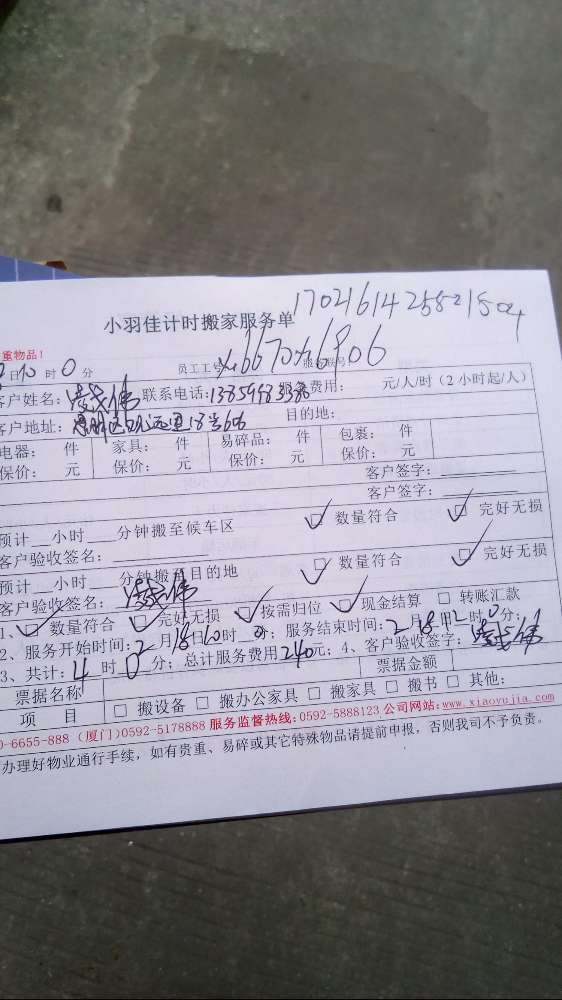 1702161425821504
小羽佳计时搬家服务单
重物品！
日10时0分 员工工号：
客户姓名： 联系电话： 服务费用： 元/人/时（2小时起/人）
客户地址： 目的地：
电器： 件 家具： 件 易碎品： 件 包裹： 件
保价： 元 保价： 元 保价： 元 保价： 元
客户签字：
客户签字：
预计__小时__分钟搬至候车区 数量符合 完好无损
客户验收签名：
预计__小时__分钟搬至目的地 数量符合 完好无损
客户验收签名：
1、 数量符合 完好无损 按需归位 现金结算 转账汇款
2、服务开始时间：2月18日10时 分；服务结束时间：2月18日12时0分；
3、共计：4时0分；总计服务费用240元；4、客户验收签字：
票据名称 票据金额
项 目 搬设备 搬办公家具 搬家具 搬书 其他：
0-6655-888 (厦门)0592-5178888 服务监督热线：0592-5888123 公司网站：www.xiaoyujia.com
办理好物业通行手续，如有贵重、易碎或其它特殊物品请提前申报，否则我司不予负责。